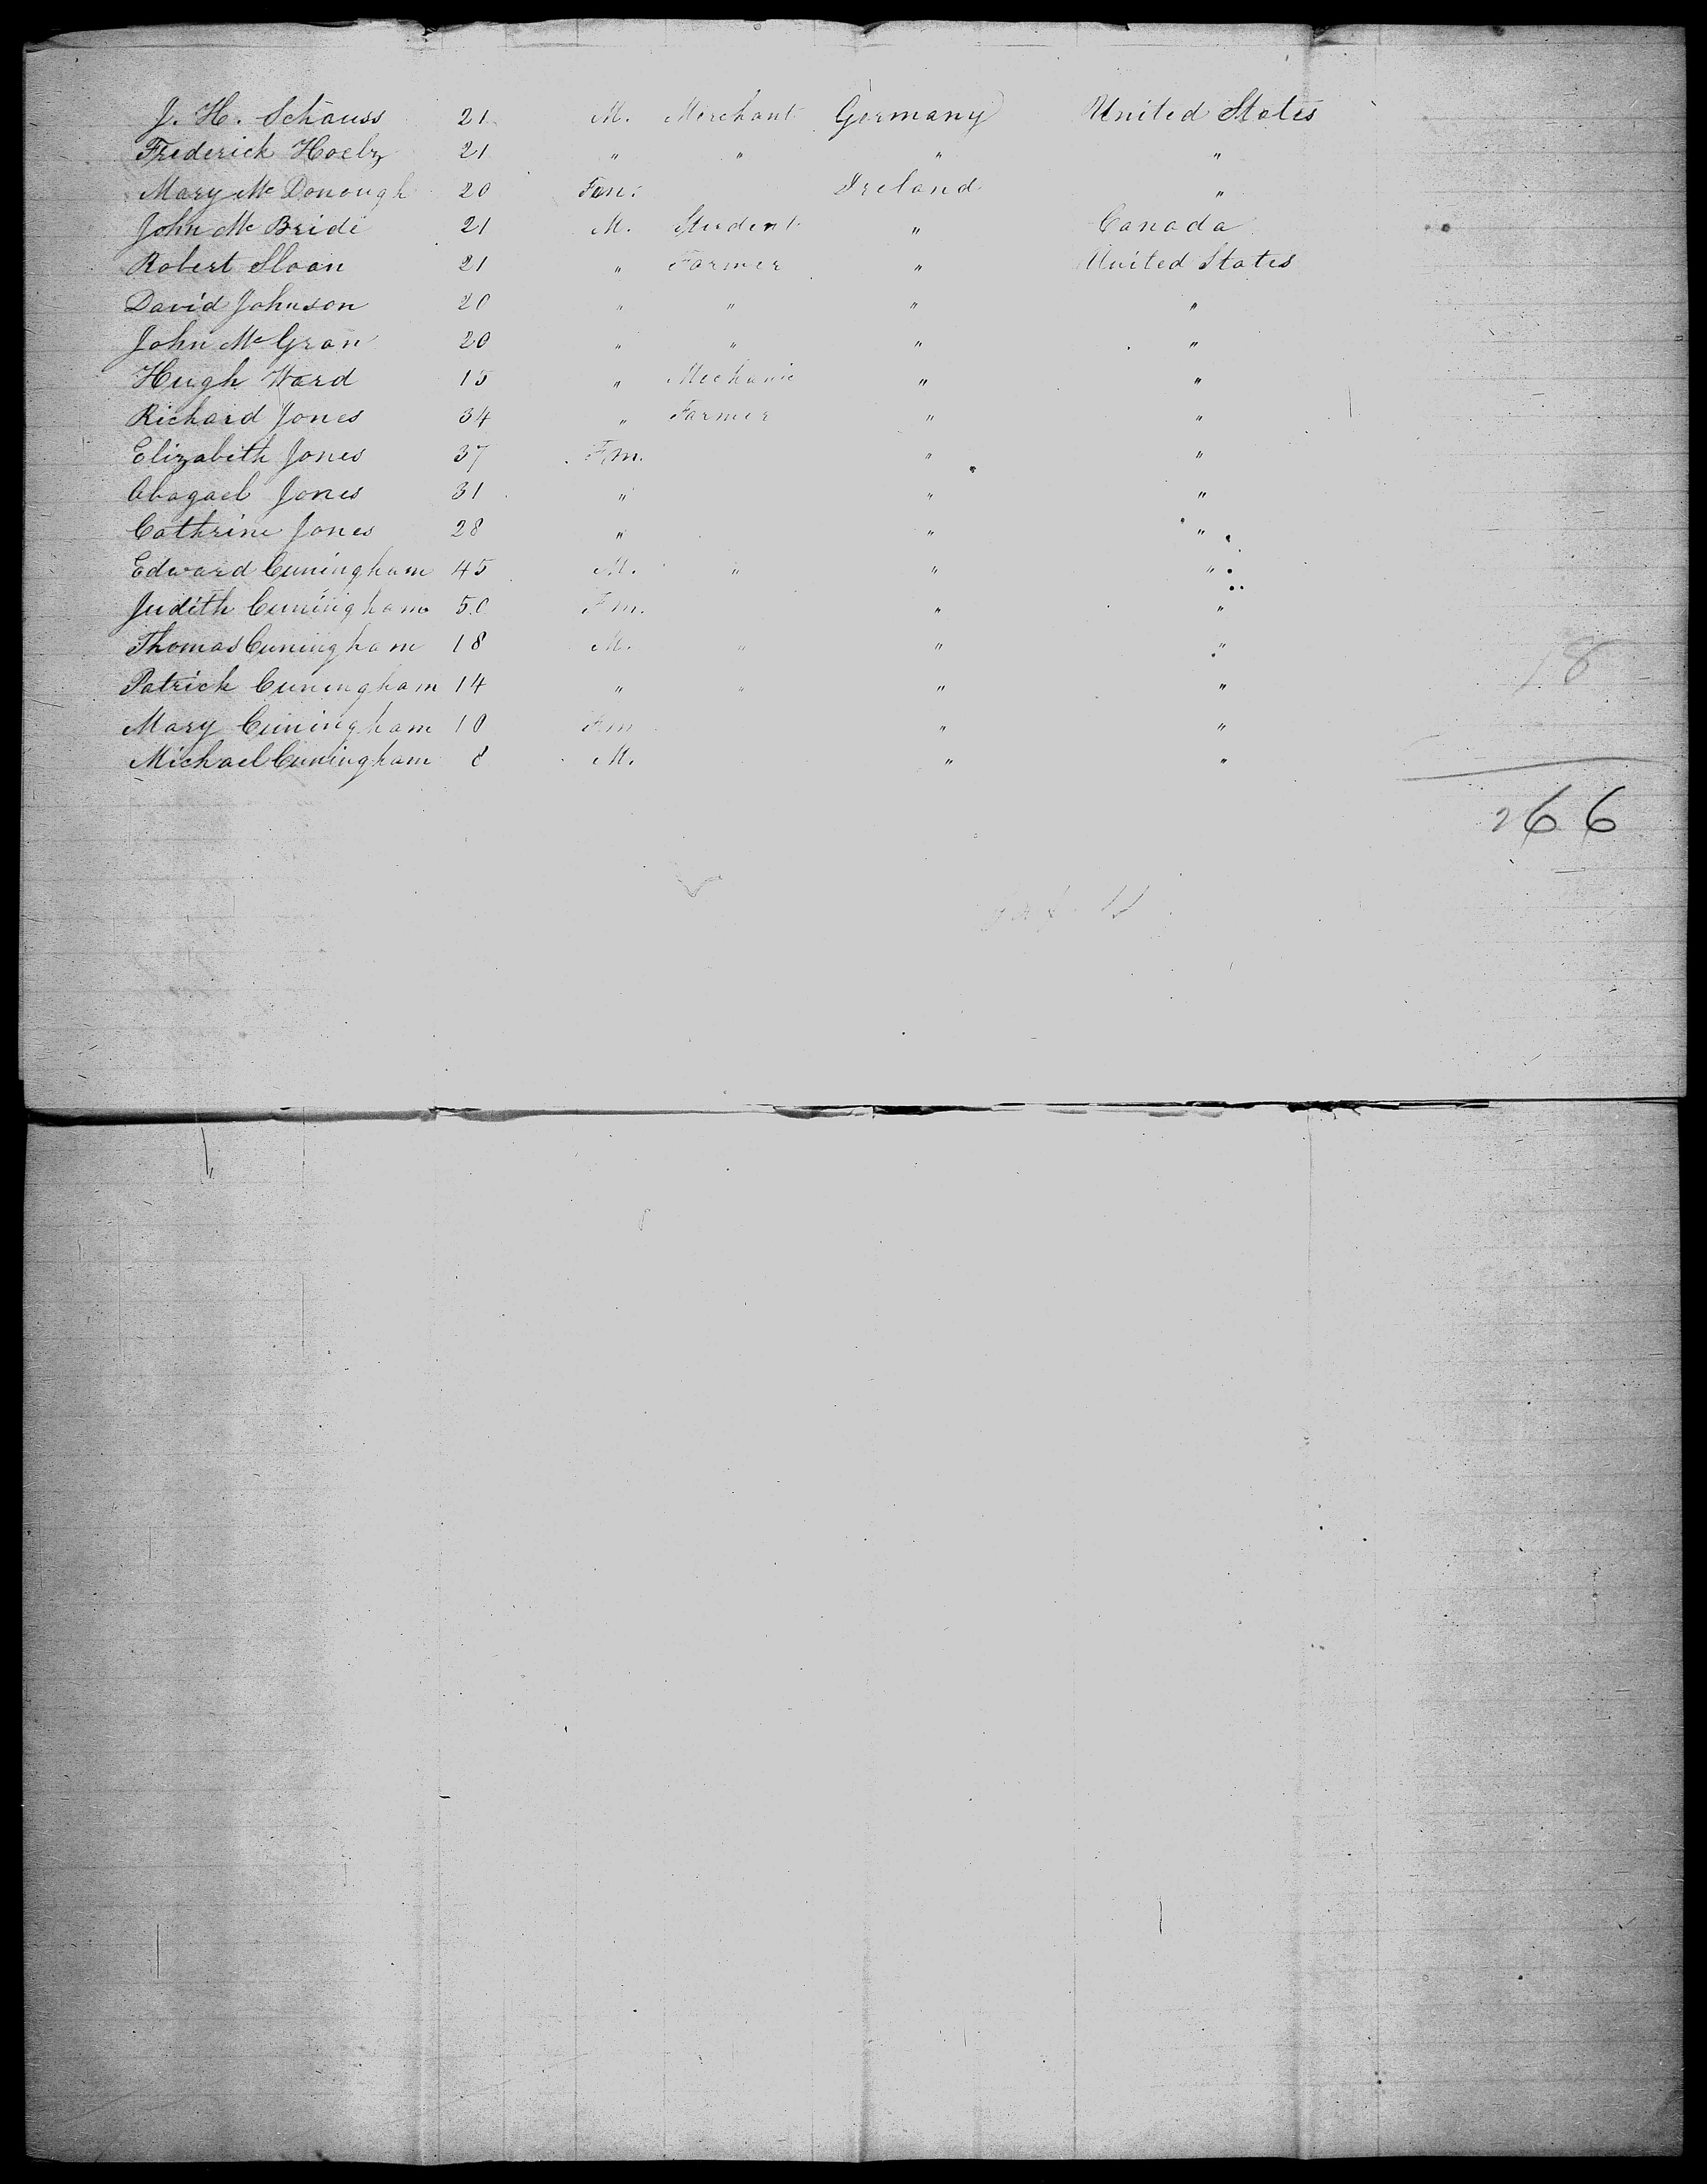 J. H. Schauss 21 M. Merchant Germany United States
Frederick Hoelz 21 " " " "
Mary McDonough 20 Fem: Ireland "
John McBride 21 M. Student " Canada
Robert Sloan 21 " Farmer " United States
David Johnson 20 " " " "
John McGran 20 " " " "
Hugh Ward 15 " Mechanic " "
Richard Jones 34 " Farmer " "
Elizabeth Jones 37 Fm. " "
Abagael Jones 31 " " "
Cathrine Jones 28 " " "
Edward Cuningham 45 M. " " "
Judith Cuningham 50 Fm. " "
Thomas Cuningham 18 M. " " "
Patrick Cuningham 14 " " " "
Mary Cuningham 10 Fm " "
Michael Cuningham 8 M. " "
18
266